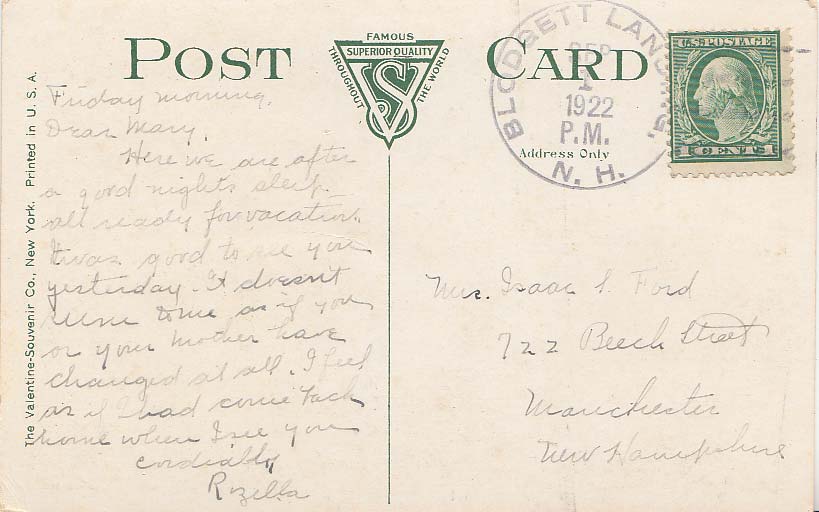 POST CARD
FAMOUS
SUPERIOR QUALITY
THROUGHOUT THE WORLD
VS
The Valentine-Souvenir Co., New York. Printed in U. S. A.
Friday morning,
Dear Mary,
Here we are after
a good nights sleep
all ready for vacation.
It was good to see you
yesterday. It doesn't
seem to me as if you
or your mother have
changed at all. I feel
as if I had come back
home when I see you
cordially
Rozella
BLODGETT LANDING,
SEP
1
1922
P.M.
N. H.
Address Only
U.S. POSTAGE
1 CENT 1
Mrs. Isaac L. Ford
722 Beech Street
Manchester
New Hampshire